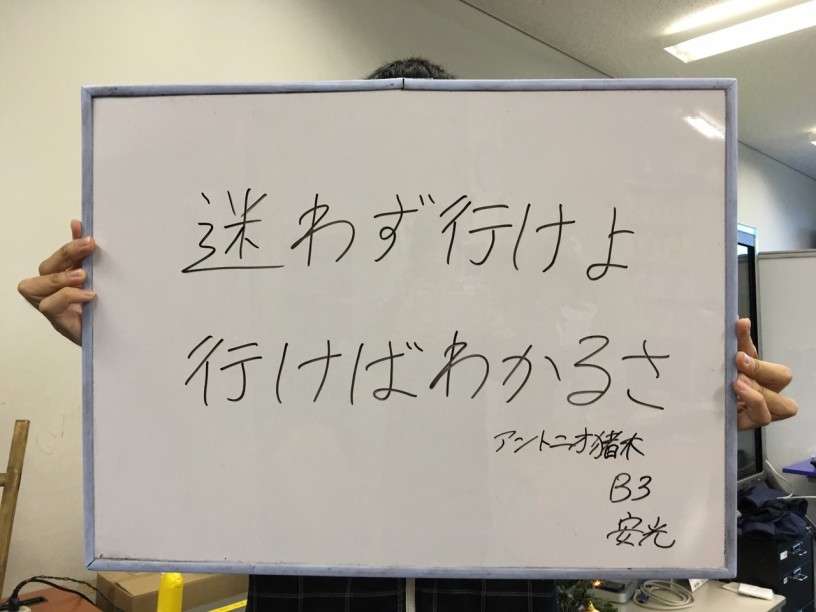 迷わず行けよ
行けばわかるさ
アントニオ猪木
B3
安光